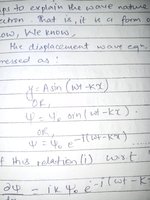 ps to explain the wave nature
ctron. That is, it is a form o
low, We know,
the displacement wave eqn.
ressed as :
y = A sin (wt - kx)
OR,
ψ = ψ₀ sin (wt - kx)
OR,
ψ = ψ₀ e^-i(wt - kx)
f this relation (i) w.r.t
∂ψ = ik ψ₀ e^-i(wt - k